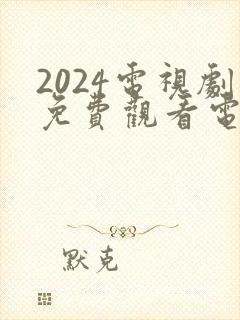 2024電視劇
免費觀看電
默克